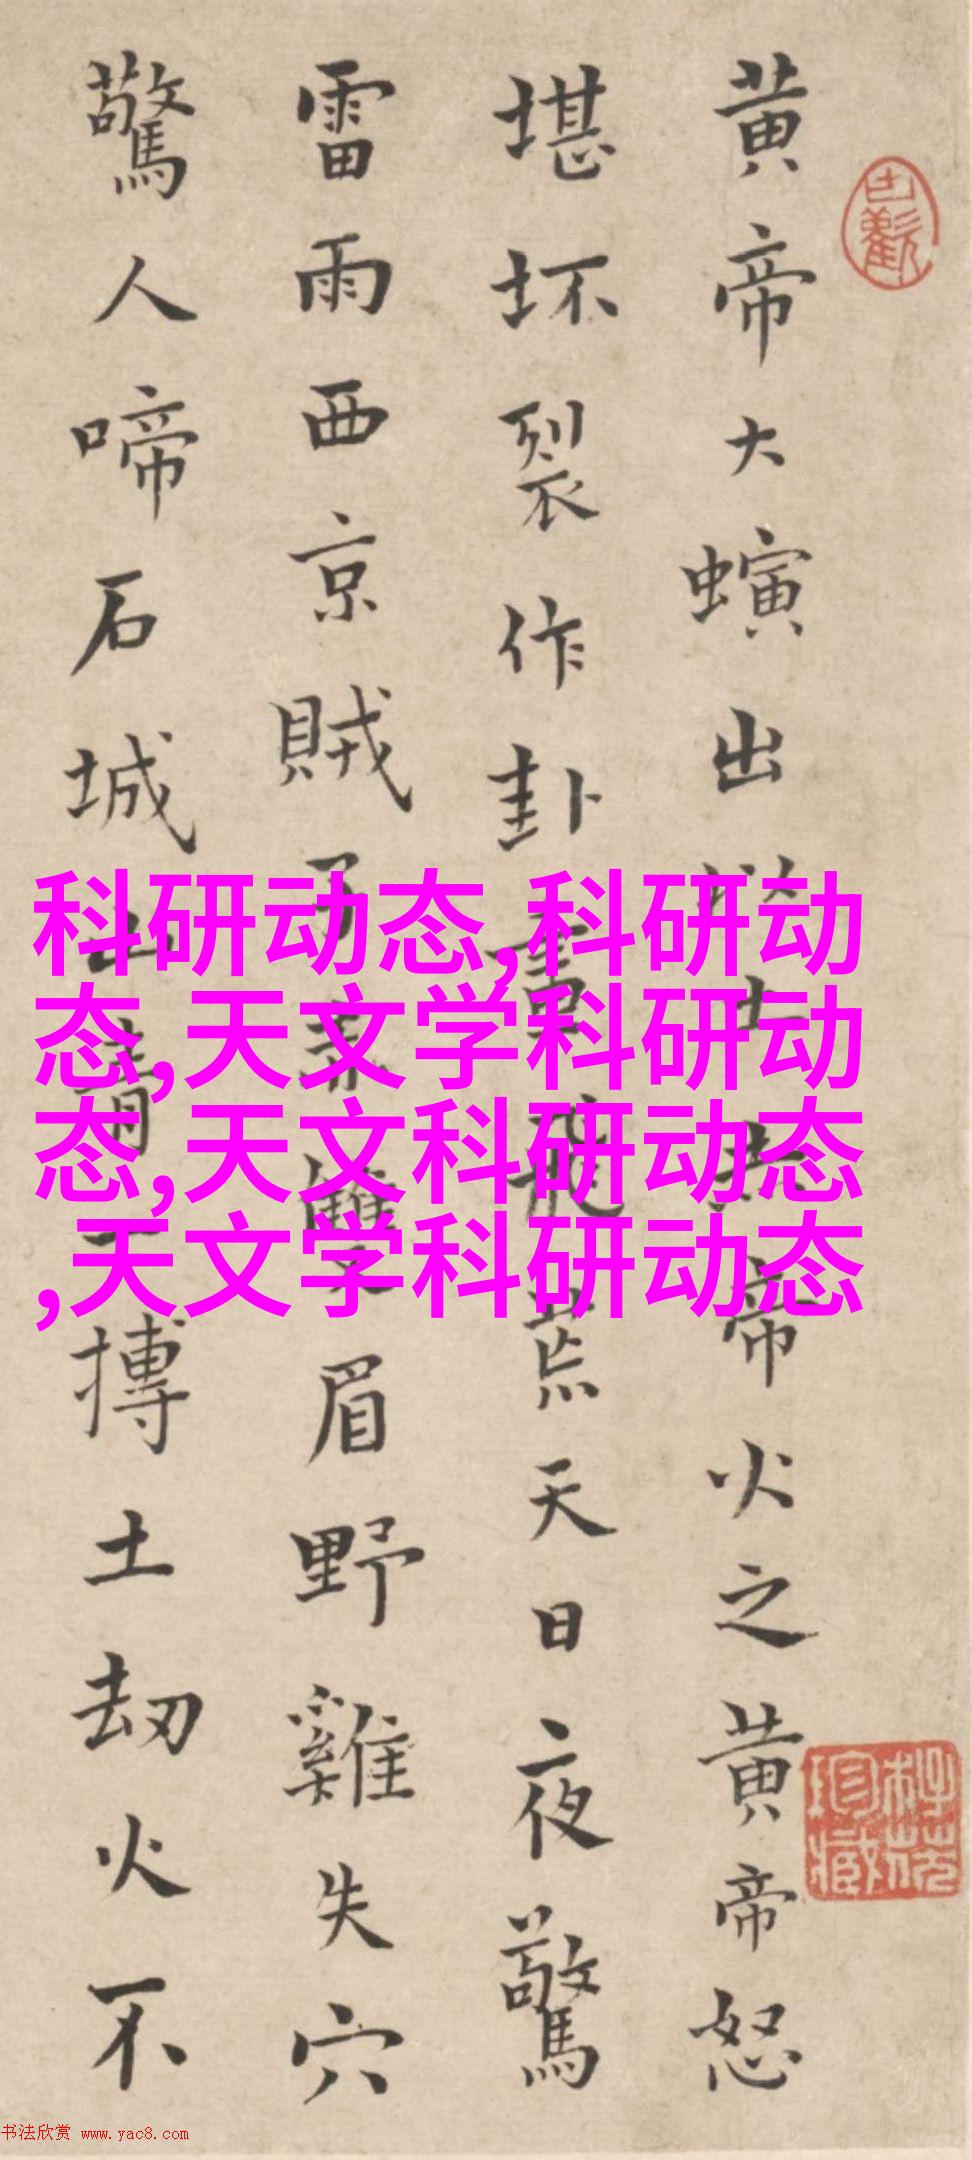 黄帝大螾出
堪坏裂作卦
天日夜驚
雷雨西京賊
眉野雞失穴
驚人啼石城
搏土劫火不
帝火之黄帝怒
科研动态,科研动
态,天文学科研动
态,天文科研动态
,天文学科研动态
书法欣赏 www.yac8.com